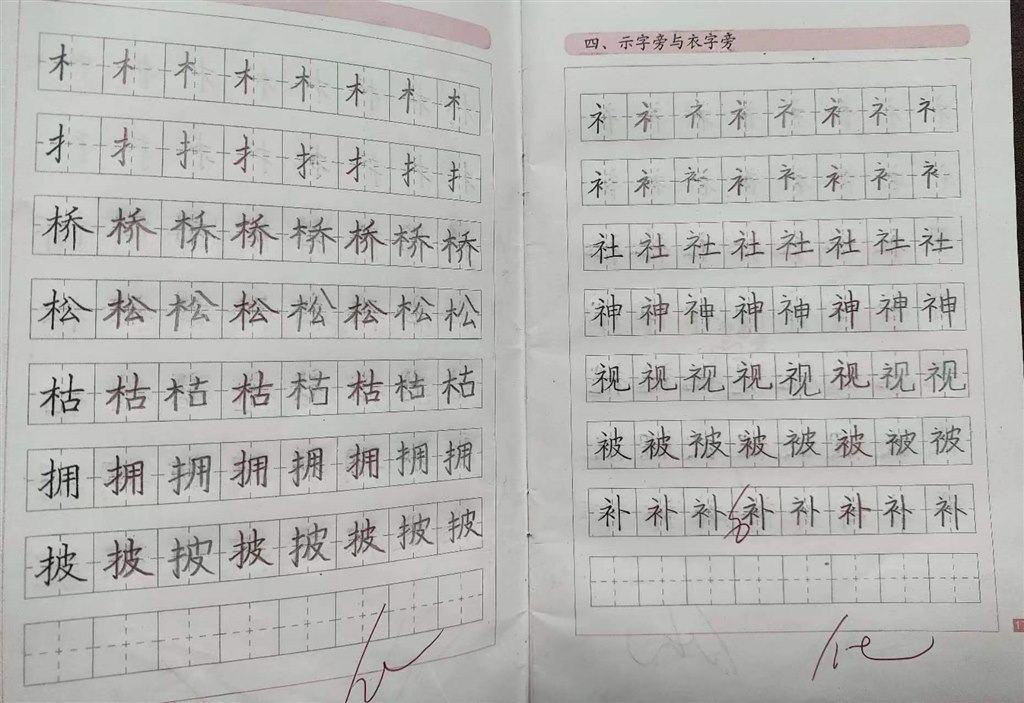 木 木 木 木 木 木 木 木
扌 扌 扌 扌 扌 扌 扌 扌
桥 桥 桥 桥 桥 桥 桥 桥
松 松 松 松 松 松 松 松
枯 枯 枯 枯 枯 枯 枯 枯
拥 拥 拥 拥 拥 拥 拥 拥
披 披 披 披 披 披 披 披
四、示字旁与衣字旁
礻 礻 礻 礻 礻 礻 礻 礻
衤 衤 衤 衤 衤 衤 衤 衤
社 社 社 社 社 社 社 社
神 神 神 神 神 神 神 神
视 视 视 视 视 视 视 视
被 被 被 被 被 被 被 被
补 补 补 补 补 补 补 补